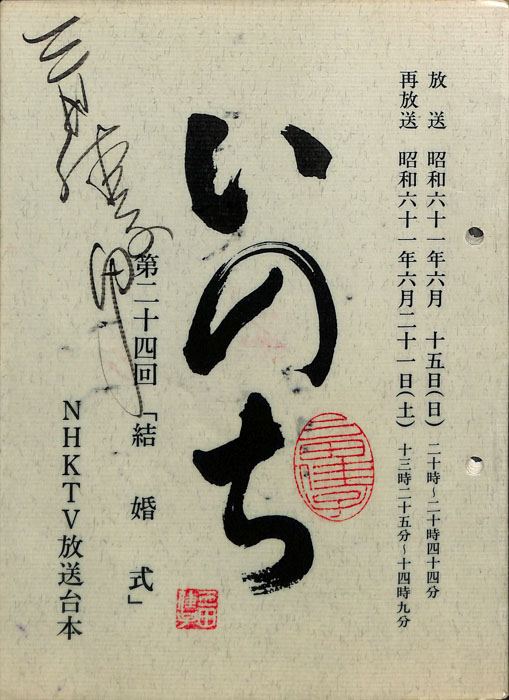 放送 昭和六十一年六月 十五日(日) 二十時~二十時四十四分
再放送 昭和六十一年六月二十一日(土) 十三時二十五分~十四時九分
いのち
第二十四回「結婚式」
NHKTV放送台本